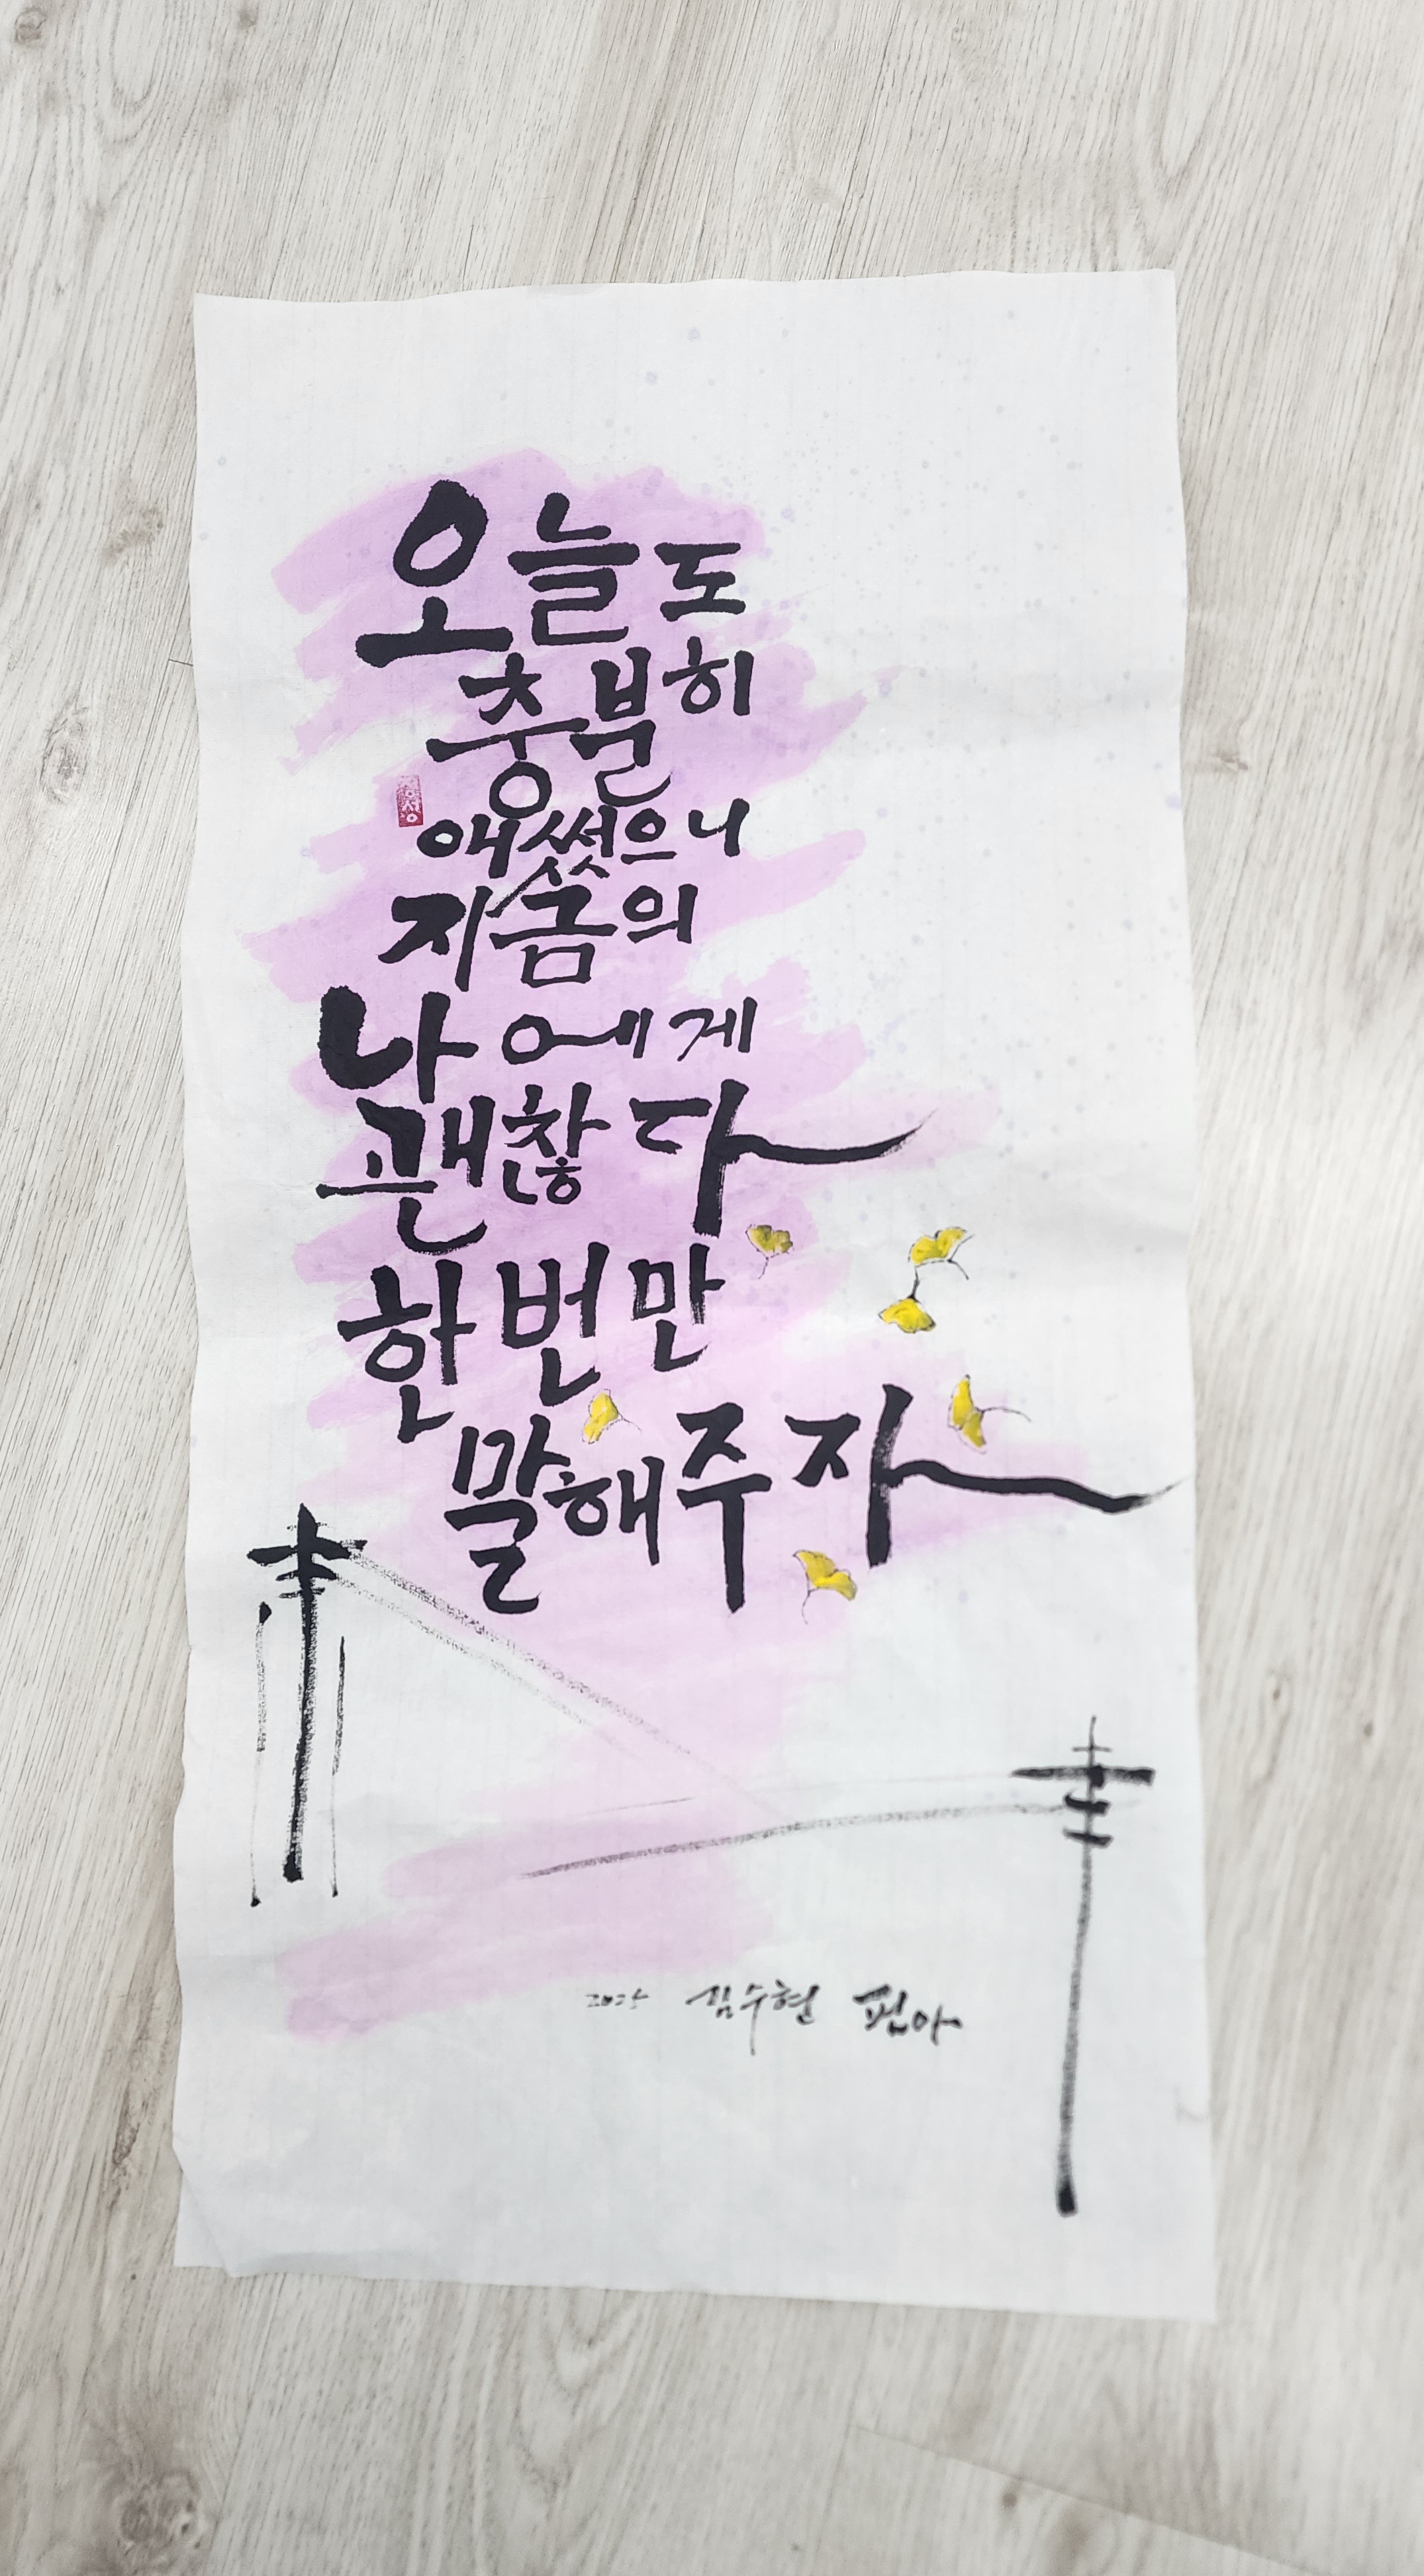 오늘도
충분히
애썼으니
지금의
나에게
괜찮다
한번만
말해주자
2025 김수현